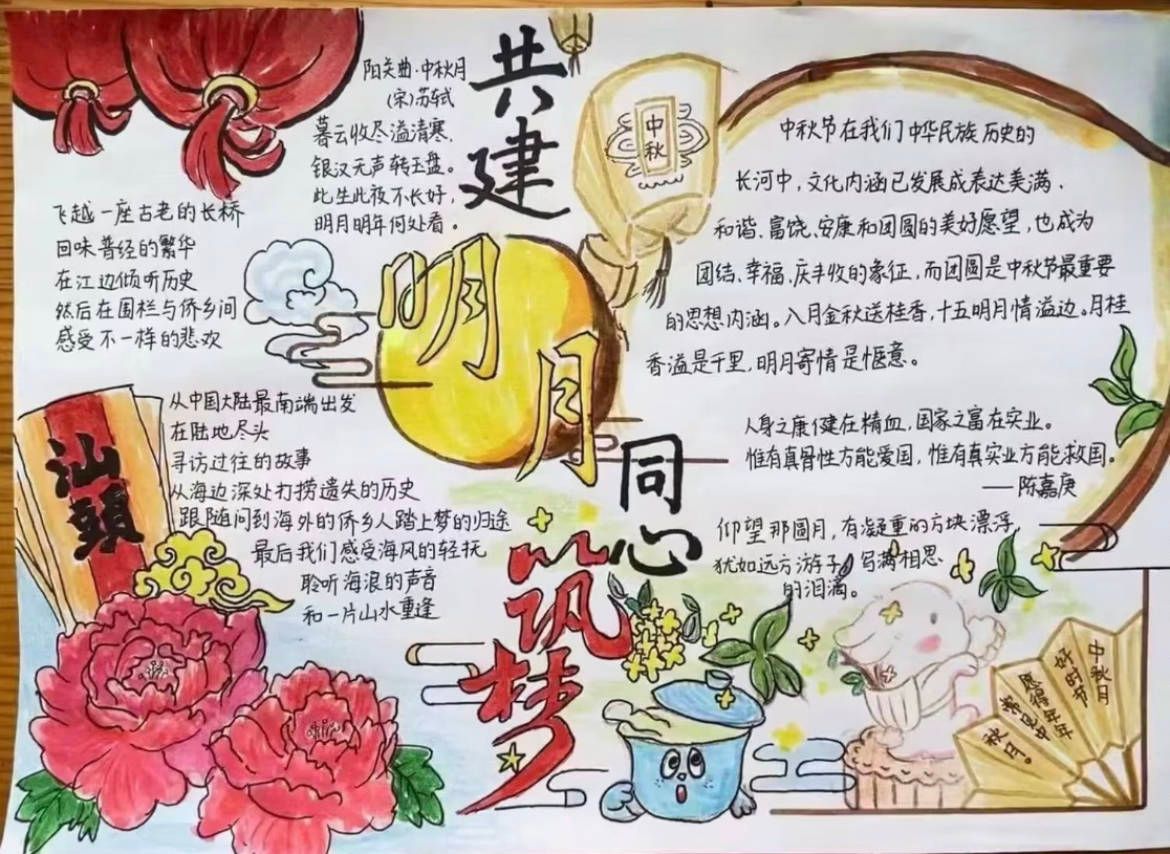 共建
明月
同心
筑梦
阳关曲·中秋月
(宋)苏轼
暮云收尽溢清寒,
银汉无声转玉盘。
此生此夜不长好,
明月明年何处看。
中秋
飞越一座古老的长桥
回味曾经的繁华
在江边倾听历史
然后在围栏与侨乡间
感受不一样的悲欢
汕頭
从中国大陆最南端出发
在陆地尽头
寻访过往的故事
从海边深处打捞遗失的历史
跟随问到海外的侨乡人踏上梦的归途
最后我们感受海风的轻抚
聆听海浪的声音
和一片山水重逢
中秋节在我们中华民族历史的
长河中,文化内涵已发展成表达美满、
和谐、富饶、安康和团圆的美好愿望,也成为
团结、幸福、庆丰收的象征,而团圆是中秋节最重要
的思想内涵。八月金秋送桂香,十五明月情溢边。月桂
香溢是千里,明月寄情是惬意。
人身之康健在精血,国家之富在实业。
惟有真骨性方能爱国,惟有真实业方能救国。
——陈嘉庚
仰望那圆月,有凝重的方块漂浮,
犹如远方游子,写满相思
的泪滴。
中秋月
好时节
愿得年年
常见中
秋月。